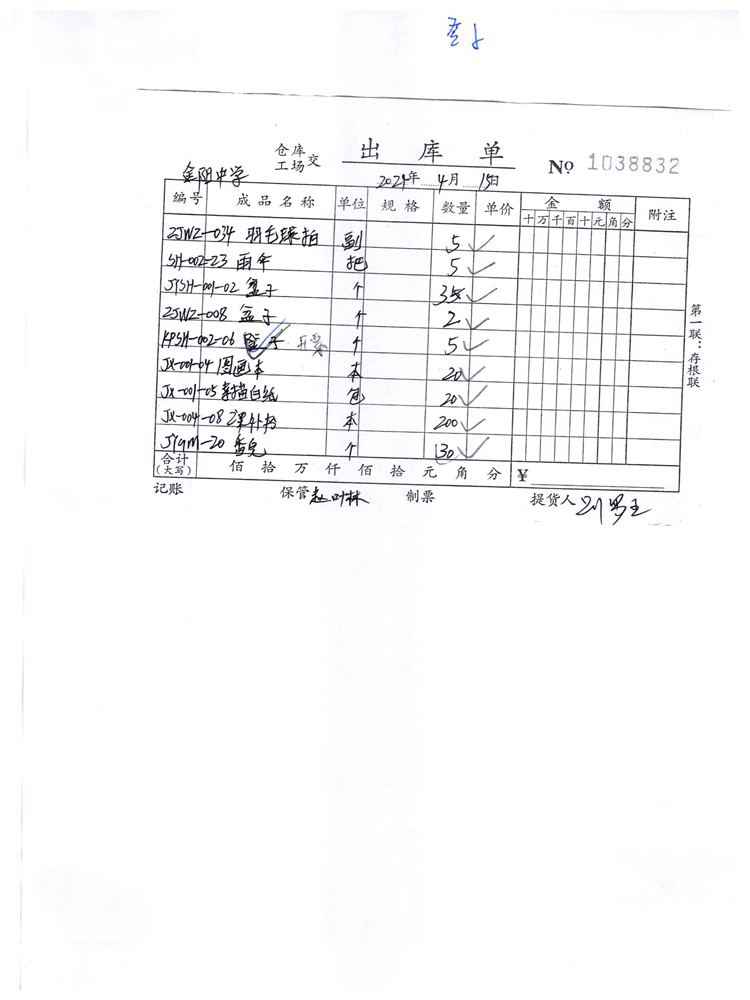 仓库
工场 交
出库单
No 1038832
金阳中学
2024年 4月 15日
编号 成品名称 单位 规格 数量 单价 金额 附注
十万千百十元角分
ZJWZ-034 羽毛球拍 副 5
SH-002-23 雨伞 把 5
JYSH-001-02 盒子 个 35
ZJWZ-008 盒子 个 2
KPSH-002-06 子 个 5
JX-001-04 图画本 本 20
JX-001-05 素描白纸 包 20
JX-004-08 本 200
JYGM-20 个 130
合计
(大写) 佰拾万仟佰拾元角分 ¥
记账 保管 赵叶林 制票 提货人
第一联:存根联